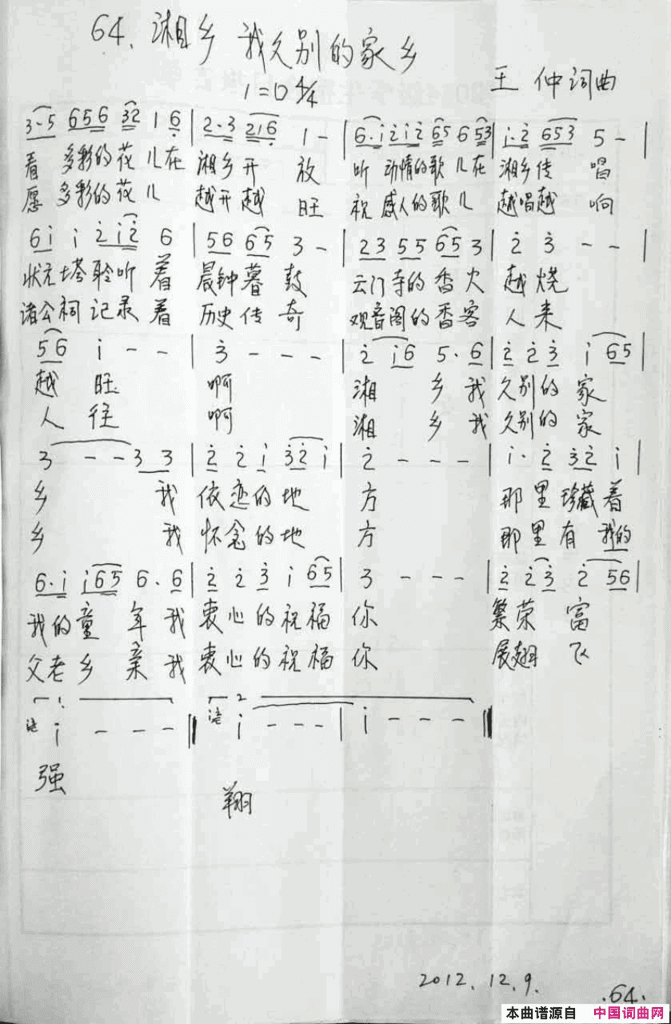 64. 湘乡 我久别的家乡
1=D 4/4
王 仲词曲
3·5 656 32 1 6 | 2·3 216 1 - | 6·i 2i2 65 6 53 | i·2 653 5 - |
看 多彩的花儿在 湘乡开 放 听 动情的歌儿在 湘乡传 唱
愿 多彩的花儿 越开越 旺 祝 感人的歌儿 越唱越 响
6i i 2i2 6 | 56 65 3 - | 23 55 65 3 | 2 3 - - |
状元塔聆听 着 晨钟暮 鼓 云门寺的香火 越烧
诸公祠记录着 历史传奇 观音阁的香客 人来
56 i - - | 3 - - - | 2 i6 5·6 | 2 23 i 65 |
越 旺 啊 湘 乡我 久别的家
人 往 啊 湘 乡我 久别的家
3 - - 3 3 | 2 2 i 32 i | 2 - - - | i·2 32 i |
乡 我 依恋的地 方 那里珍藏着
乡 我 怀念的地 方 那里有我的
6·i i65 6·6 | 2 2 3 i 65 | 3 - - - | 2 23 2 56 |
我的童 年我 衷心的祝福 你 繁荣 富
父老乡 亲我 衷心的祝福 你 展翅 飞
1. 2
i - - - i - - - | i - - -
强
翔
2012.12.9.
.64.
本曲谱源自 中国词曲网